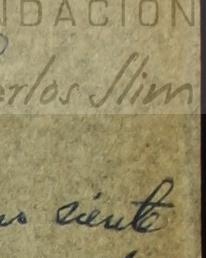 NDACIÓN
erlos Slim
siente